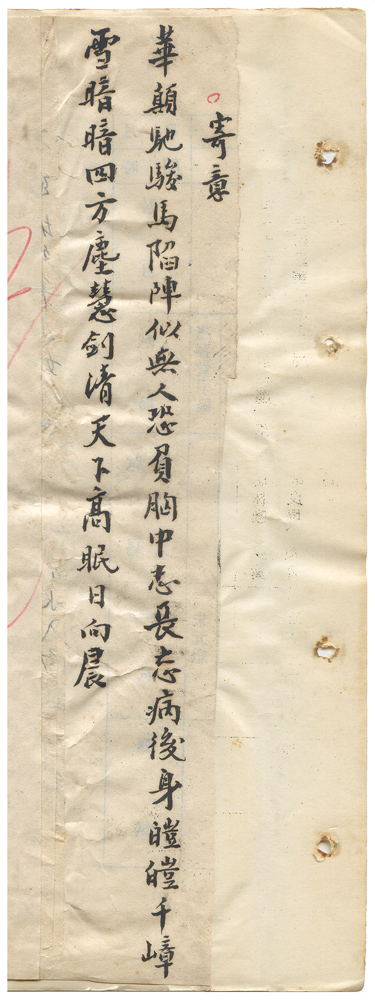 寄章
華顛馳駿馬陷陣似無人恐負胸中志長忘病後身皚皚千嶂
雪暗暗四方塵慧劍清天下高眠日向晨